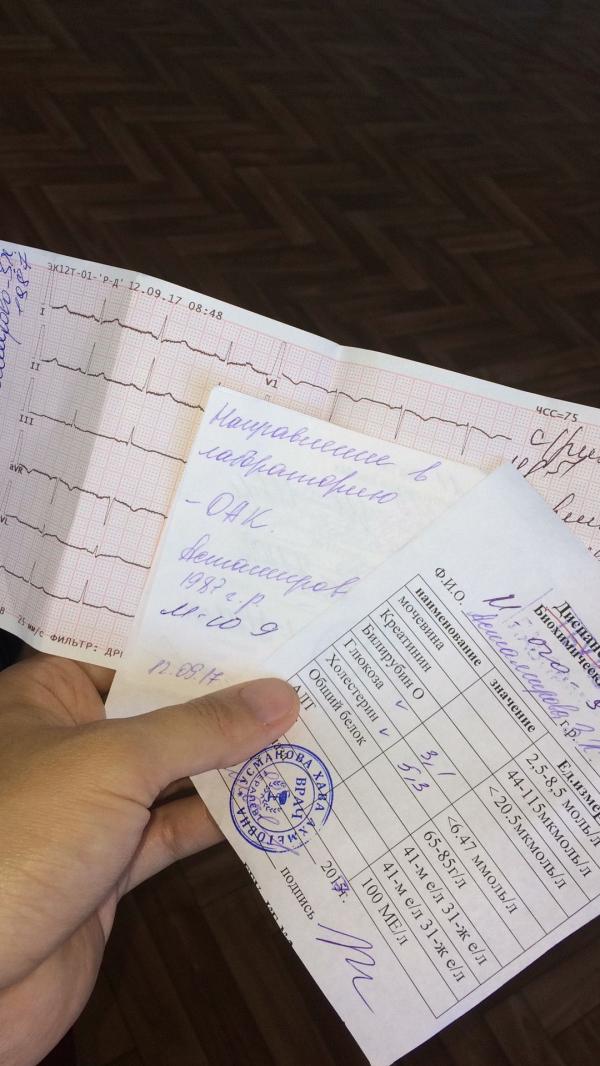 ЭК12Т-01-'Р-Д' 12.09.17 08:48
1987
ЧСС=75
I
V1
II
III
aVR
VL
25 мм/с ФИЛЬТР:
Направление в
лабораторию
- ОАК.
1987 г.р.
М-10 9
12.09.17
Биохимическ
Ф.И.О.
г.р.
наименование значение Ед.измер
мочевина 2,5-8,5 моль/л
Креатинин 44-115мкмоль/л
Билирубин О <20.5мкмоль/л
Глюкоза ✓ 3,1
Холестерин ✓ 5,3 <6.47 ммоль/л
Общий белок 65-85г/л
41-м е/л 31-ж е/л
41-м е/л 31-ж е/л
100 МЕ/л
УСМАНОВА ХАВА АХМЕТОВНА
ВРАЧ
2017г.
подпись